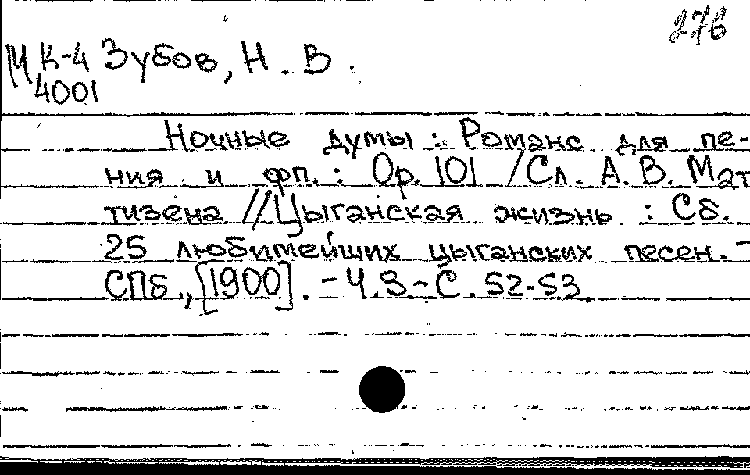 276
МК-4 Зубов, Н. В.
4001
Ночные думы : Романс для пе-
ния и фп. : Op. 101 / Сл. А. В. Мат
тизена // Цыганская жизнь : Сб.
25 любимейших цыганских песен. -
СПб., [1900]. - Ч. 3 - С. 52-53